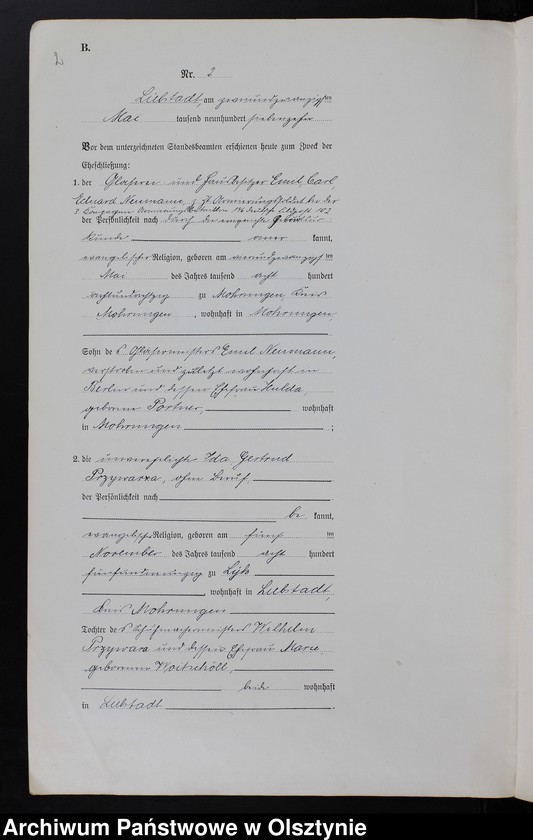 2
B.
Nr. 2
Liebstadt, am zweiundzwanzigsten
Mai tausend neunhundert siebenzehn
Vor dem unterzeichneten Standesbeamten erschienen heute zum Zweck der
Eheschließung:
1. der Glaser und Hausbesitzer Emil Carl
Eduard Neumann, z. Zt. Armierungssoldat bei der
der Persönlichkeit nach durch Geburtsur
kunde kannt,
evangelischer Religion, geboren am ten
Mai des Jahres tausend acht hundert
achtundachtzig zu Mohrungen, Kreis
Mohrungen, wohnhaft in Mohrungen,
Sohn des Glasermeisters Emil Neumann,
verstorben und zuletzt wohnhaft in
Berlin und dessen Ehefrau Hulda,
geborene Portner, wohnhaft
in Mohrungen ;
2. die unverehelichte Ida Gertrud
Przywarra, ohne Beruf,
der Persönlichkeit nach
be kannt,
evangelischer Religion, geboren am fünf ten
November des Jahres tausend acht hundert
fünfundneunzig zu Lyck
, wohnhaft in Liebstadt,
Kreis Mohrungen
Tochter des Schuhmachermeisters Wilhelm
Przywara und dessen Ehefrau Marie,
geborenen
beide wohnhaft
in Liebstadt .
Archiwum Państwowe w Olsztynie